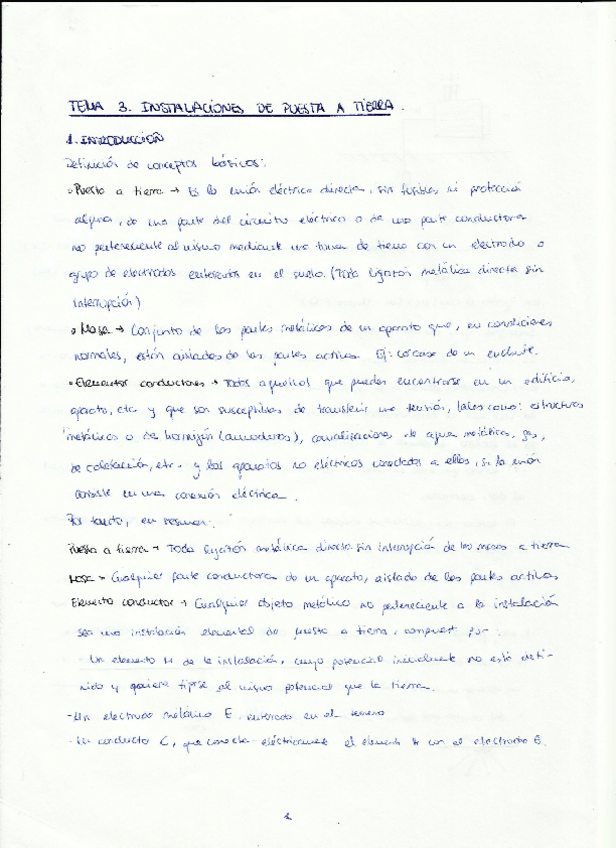 TEMA 3. INSTALACIONES DE PUESTA A TIERRA.
1. INTRODUCCIÓN
Definición de conceptos básicos:
• Puesta a tierra → Es la unión eléctrica directa, sin fusibles ni protección
alguna, de una parte del circuito eléctrico o de una parte conductora
no perteneciente al mismo mediante una toma de tierra con un electrodo o
grupo de electrodos enterrados en el suelo. (Toda ligazón metálica directa sin
interrupción)
• Masa → Conjunto de las partes metálicas de un aparato que, en condiciones
normales, están aisladas de las partes activas. Ej: carcasa de un enchufe.
• Elementos conductores → Todos aquellos que pueden encontrarse en un edificio,
aparato, etc. y que son susceptibles de transferir una tensión, tales como: estructuras
metálicas o de hormigón (armaduras), canalizaciones de agua metálicas, gas,
de calefacción, etc. y los aparatos no eléctricos conectados a ellos, si la unión
consiste en una conexión eléctrica.
Por tanto, en resumen:
Puesta a tierra → Toda ligazón metálica directa sin interrupción de las masas a tierra
Masa → Cualquier parte conductora de un aparato, aislada de las partes activas
Elemento conductor → Cualquier objeto metálico no perteneciente a la instalación
sea una instalación elemental de puesta a tierra, compuest por:
- Un elemento M de la instalación, cuyo potencial inicialmente no está defi-
nido y quiere fijarse al mismo potencial que la tierra.
- Un electrodo metálico E, enterrado en el terreno
- Un conducto C, que conecta eléctricamente el elemento M con el electrodo E.
1